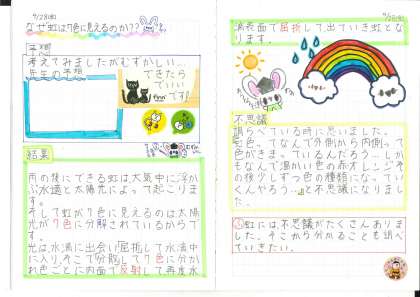 9/28(水)
なぜ虹は7色に見えるのか??
予想
考えてみましたがむずかしい…
先生の予想
できたら
でいい
です!
結果
雨の後にできる虹は大気中に浮か
ぶ水滴と太陽光によって起こりま
す。
そして虹が7色に見えるのは太陽
光が7色に分解されているからで
す。
光は水滴に出会い屈指して水滴中
に入り、そこで分散して7色に分か
れ色ごとに内面で反射して再度水
滴表面で屈指して出ていき虹とな
ります。
不思議
調べている時に思いました。
虹色ってなんで外側から内側って
色がきまっているんだろう…しか
もなんで温かい色の赤オレンジ
の後少しずつ色の種類になってい
くんやろう…と不思議になりまし
た。
虹には、不思議がたくさんありま
した。そこから分かることも調べ
ていきたい。